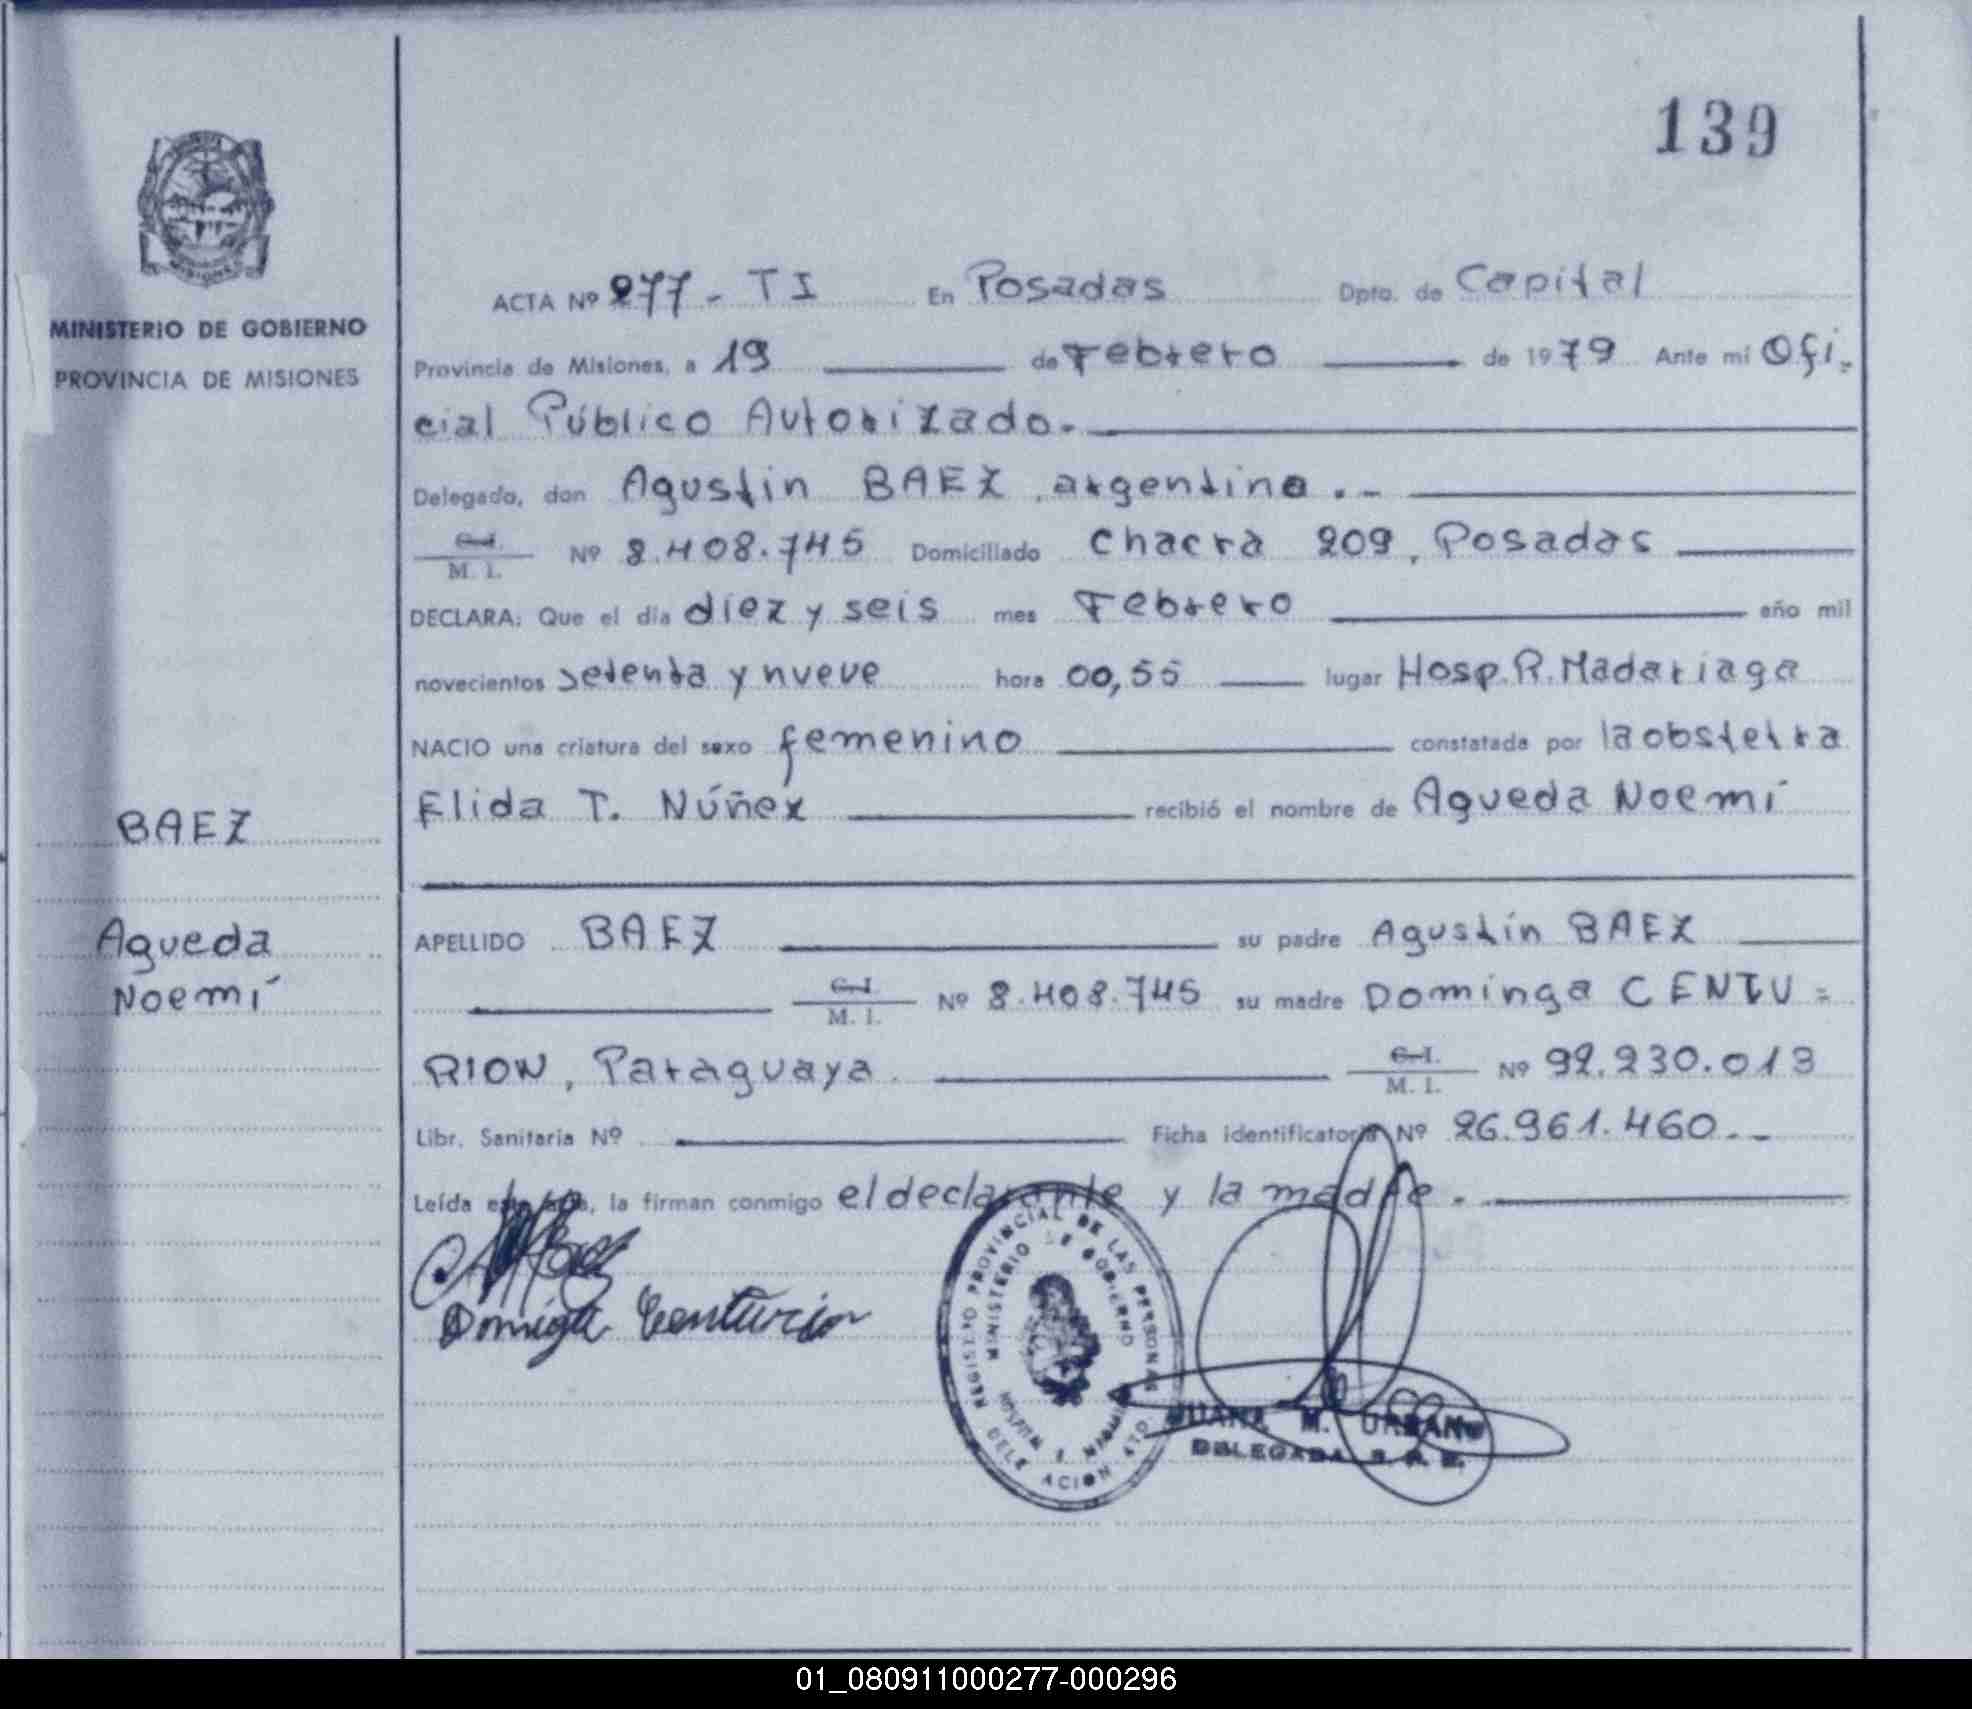 139
MINISTERIO DE GOBIERNO
PROVINCIA DE MISIONES
ACTA Nº 277 - TI En Posadas Dpto. de Capital
Provincia de Misiones, a 19 de Febrero de 1979 Ante mi Ofi=
cial Público Autorizado.-
Delegado, don Agustin BAEZ, argentino.-
C.I. / M. I. Nº 8.408.745 Domiciliado Chacra 209, Posadas
DECLARA: Que el día diez y seis mes Febrero año mil
novecientos setenta y nueve hora 00,55 lugar Hosp. R. Madariaga
NACIO una criatura del sexo femenino constatada por la obstetra
Elida T. Núñez recibió el nombre de Agueda Noemí
BAEZ
Agueda
Noemí
APELLIDO BAEZ su padre Agustín BAEZ
C.I. / M. I. Nº 8.408.745 su madre Dominga CENTU=
RION, Paraguaya. C.I. / M. I. Nº 92.230.013
Libr. Sanitaria Nº Ficha identificatoria Nº 26.961.460.-
Leída esta acta, la firman conmigo el declarante y la madre.
Dominga Centurion
REGISTRO PROVINCIAL DE LAS PERSONAS
MINISTERIO DE GOBIERNO
DELEGACION
JUANA M. URBANO
DELEGADA
01_080911000277-000296